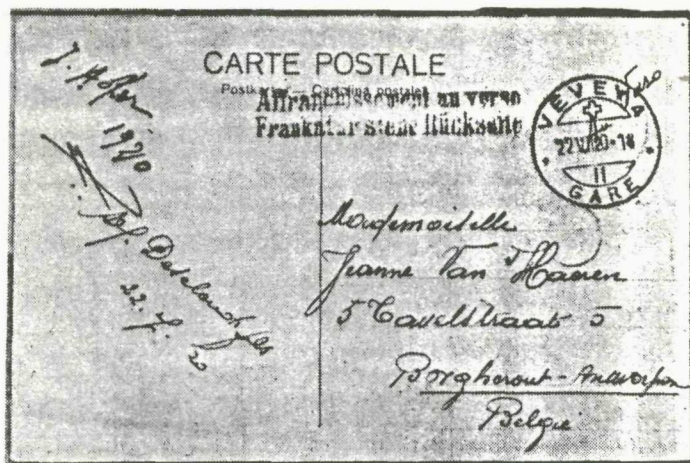 CARTE POSTALE
Postkarte — Cartolina postale
Affranchissement au verso
Frankatur siehe Rückseite
VEVEY
22 VII 20-18
II
GARE
1920
22. 7. 20
Mademoiselle
Jeanne Van Haeren
5 Cavelstraat 5
Borgherout - Antwerpen
Belgie